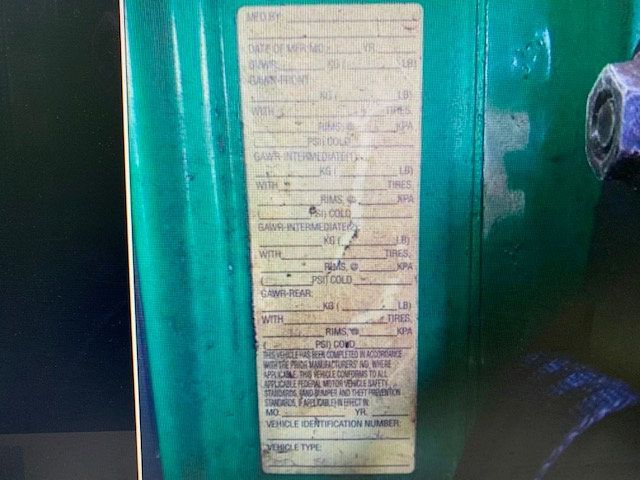 MFD BY
DATE OF MFR MO. YR.
GVWR KG ( LB)
GAWR-FRONT
KG ( LB)
WITH TIRES,
RIMS, @ KPA
( PSI) COLD
GAWR-INTERMEDIATE(1)
KG ( LB)
WITH TIRES,
RIMS, @ KPA
( PSI) COLD
GAWR-INTERMEDIATE(2)
KG ( LB)
WITH TIRES,
RIMS, @ KPA
( PSI) COLD
GAWR-REAR:
KG ( LB)
WITH TIRES,
RIMS, @ KPA
( PSI) COLD
THIS VEHICLE HAS BEEN COMPLETED IN ACCORDANCE
WITH THE PRIOR MANUFACTURERS' WHERE
APPLICABLE. THIS VEHICLE CONFORMS TO ALL
APPLICABLE FEDERAL MOTOR VEHICLE SAFETY
STANDARDS, BUMPER AND THEFT PREVENTION
STANDARDS, IF APPLICABLE) IN EFFECT IN
MO. YR.
VEHICLE IDENTIFICATION NUMBER:
VEHICLE TYPE: